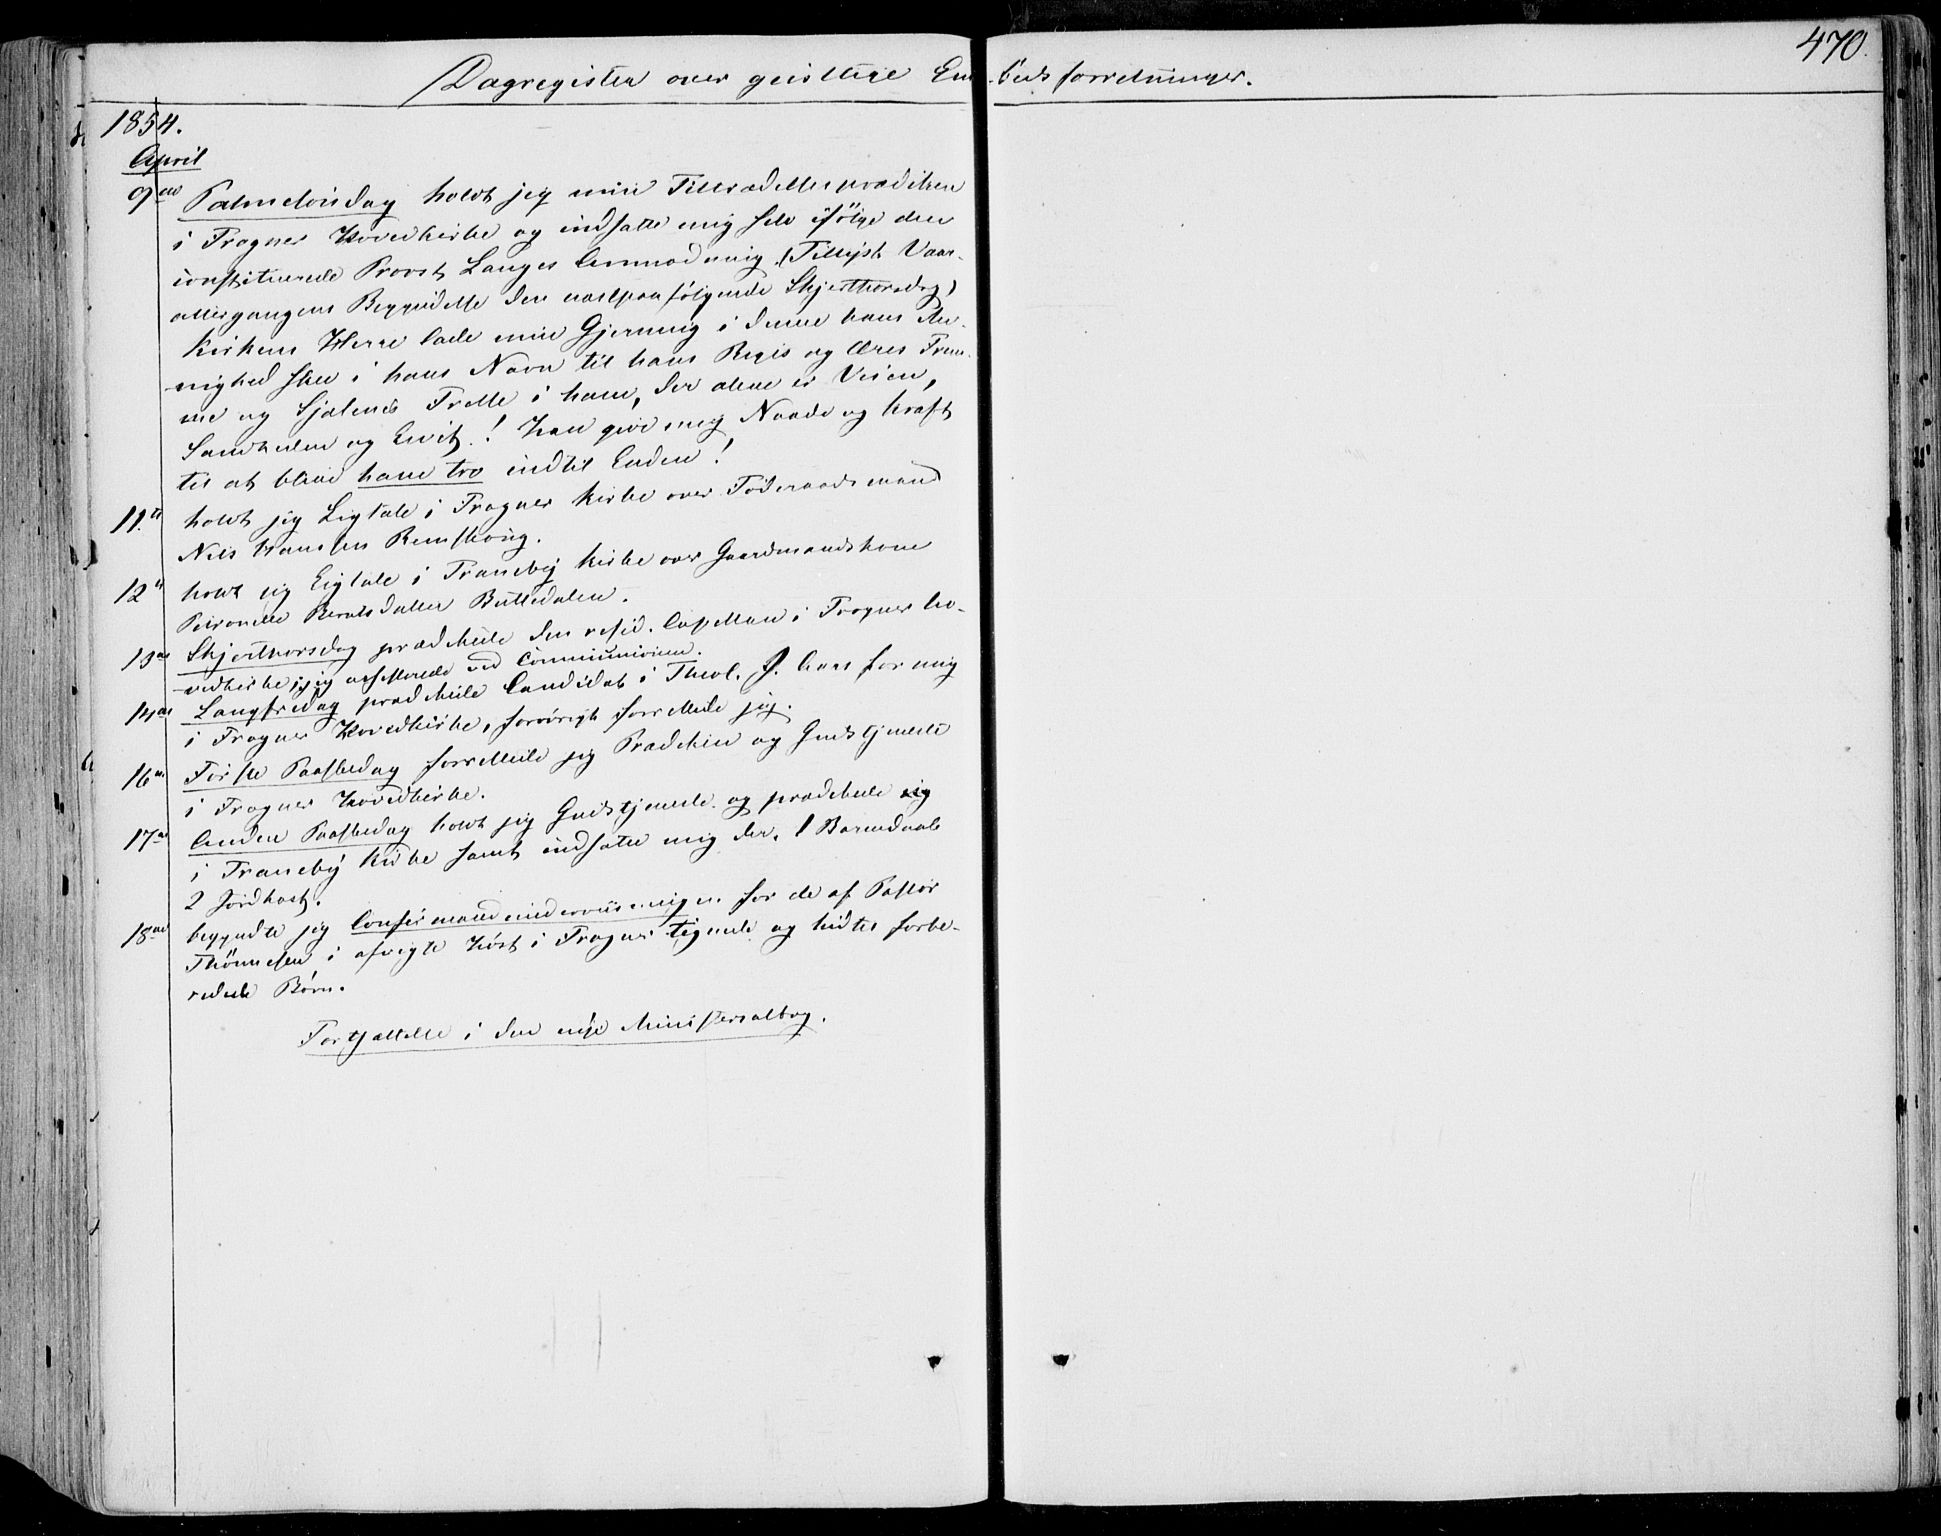 470.
Dagregister over geistlige Embedsforretninger.
1854.
April
9de Palmesöndag holdt jeg min Tiltrædelsesprædiken
i Frogner Hovedkirke og indsatte mig selv ifölge den
constituerede Provst Langes Anmodning. (Tillyst Vaar-
altergangens Begyndelse den næstpaafölgende Skjerthorsdag)
Kirkens Herre lade min Gjerning i denne hans Me-
nighed skee i hans Navn til hans Riges og Æres Frem-
me og Sjælenes Frelse i ham, der alene er Veien,
Sandheden og Livet! Han give mig Naade og Kraft
til at blive ham tro indtil Enden!
11te holdt jeg Ligtale i Frogner Kirke over Föderaadsmand
Nils Hansen
12te holdt jeg Ligtale i Traneby Kirke over Gaardmandskone
Petronelle
13de Skjerthorsdag prædikede den resid. Capellan i Frogner Ho-
vedkirke; jeg assisterede ved Communionen.
14de Langfredag prædikede Candidat i Theol. J. for mig
i Frogner Hovedkirke, forövrigt forrettede jeg.
16de Förste Paaskedag forrettede jeg Prædiken og Gudstjeneste
i Frogner Hovedkirke.
17de Anden Paaskedag holdt jeg Gudstjeneste og prædikede
i Traneby Kirke samt indsatte mig der. 1 Barnedaab
2 Jordkast.
18de begyndte jeg Confirmandundervisningen for de af Pastor
Thönnesen i afvigte Höst i Frogner tegnede og hidtil forbe-
redede Börn.
Fortsættelse i den nye Ministerialbog.